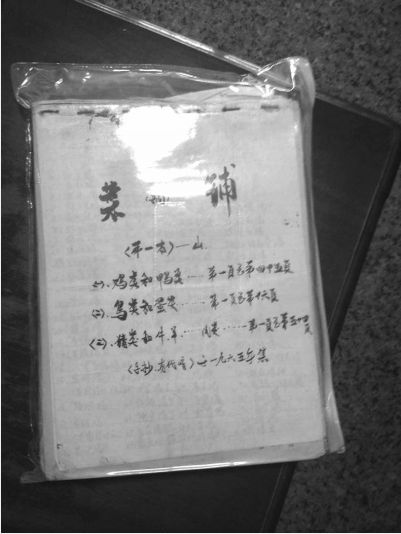 菜 铺
<第一方>—山
(一).鸡类和鸭类……第一页至第四十五页
(二).鸟类和蛋类……第一页至第十六页
(三).猪类和牛.羊……肉类……第一页至第三十四页
一九六五年集